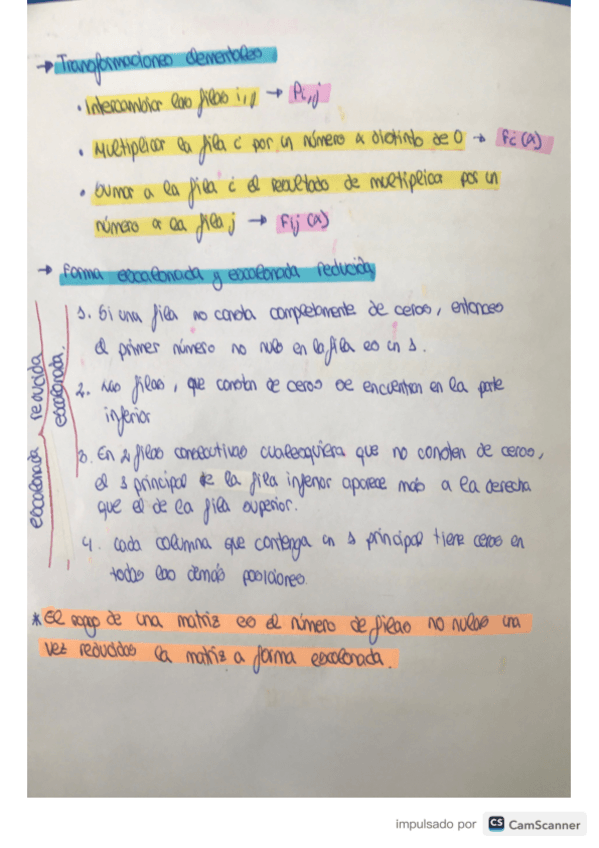 → Transformaciones elementales
· Intercambiar las filas i,j → Pi,j
· Multiplicar la fila i por un número a distinto de 0 → Fi(a)
· Sumar a la fila i el resultado de multiplicar por un
número a la fila j → Fij(a)
→ Forma escalonada y escalonada reducida
1. Si una fila no consta completamente de ceros, entonces
el primer número no nulo en la fila es un 1.
2. Las filas, que constan de ceros se encuentran en la parte
inferior
3. En 2 filas consecutivas cualesquiera que no consten de ceros,
el 1 principal de la fila inferior aparece más a la derecha
que el de la fila superior.
4. Cada columna que contenga un 1 principal tiene ceros en
todas las demás posiciones.
escalonada reducida
escalonada.
* El rango de una matriz es el número de filas no nulas una
vez reducidas la matriz a forma escalonada.
impulsado por CS CamScanner